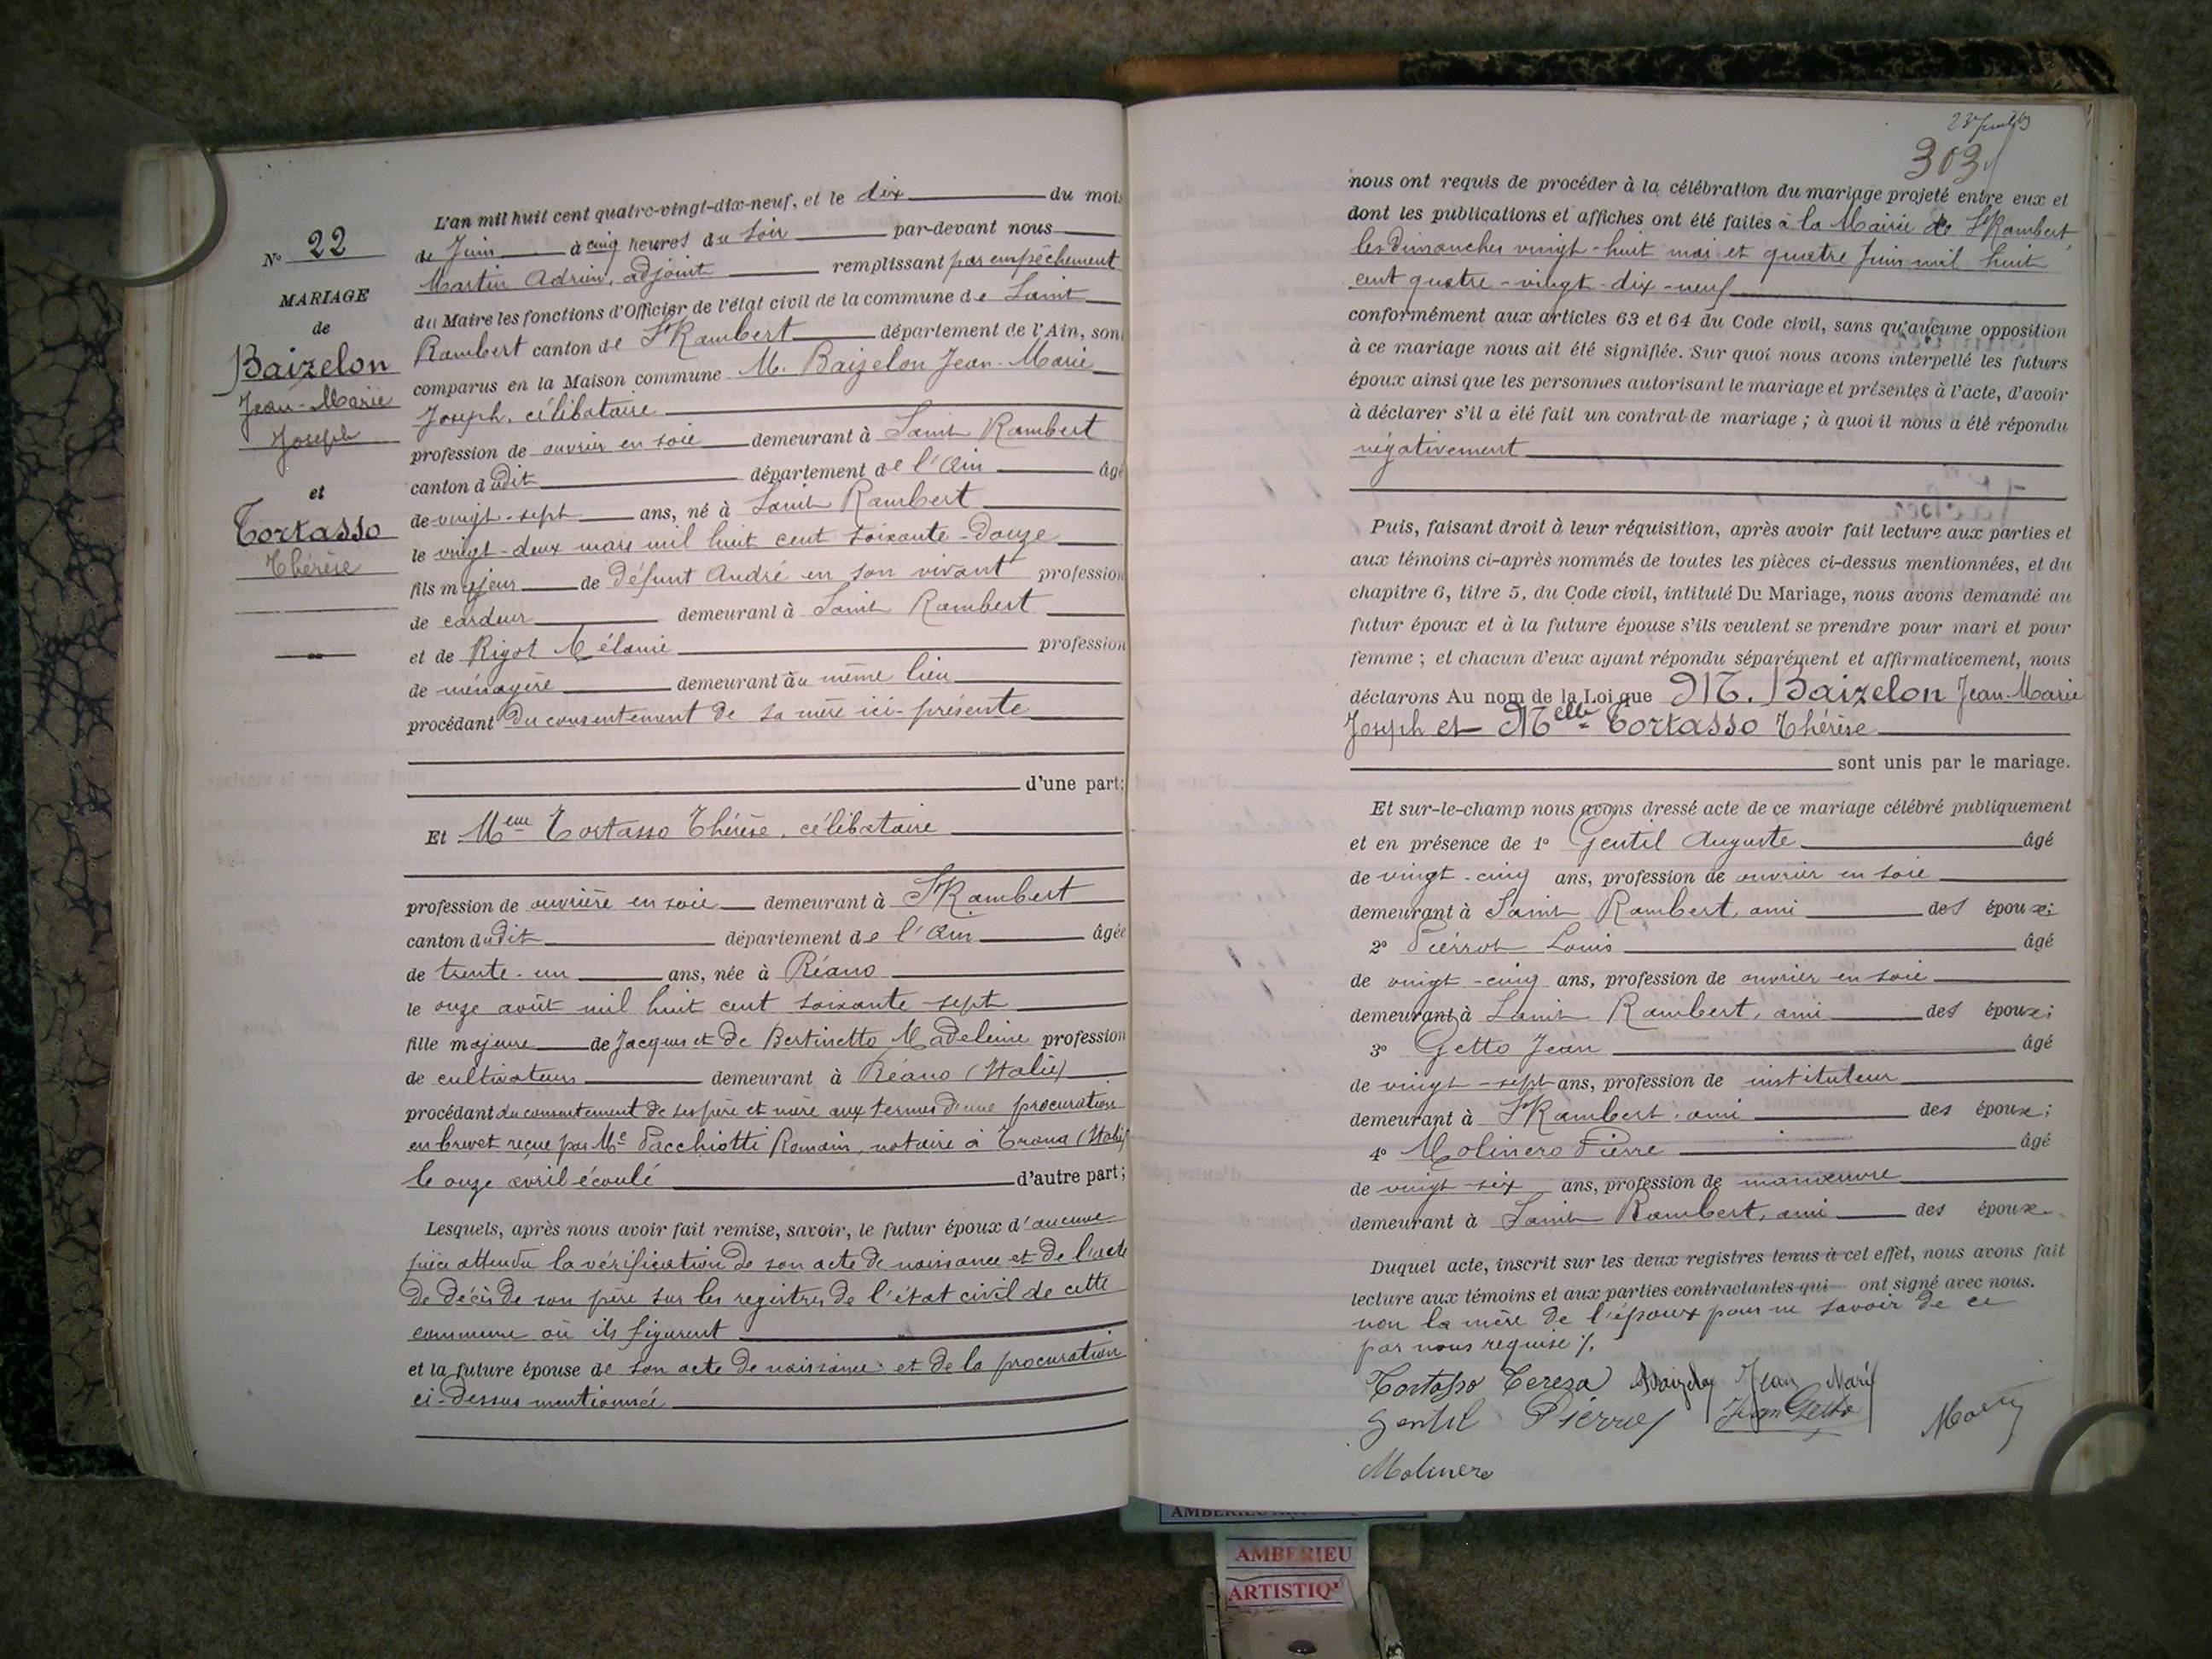 N° 22
MARIAGE
de
Baizelon
Jean-Marie
Joseph
et
Tortasso
Thérèse
L'an mil huit cent quatre-vingt-dix-neuf, et le dix du mois
de Juin à cinq heures du soir par-devant nous
Martin Adrien, adjoint remplissant par empêchement
du Maire les fonctions d'Officier de l'état civil de la commune de Saint
Rambert canton de St Rambert département de l'Ain, sont
comparus en la Maison commune M. Baizelon Jean-Marie
Joseph, célibataire
profession de ouvrier en soie demeurant à Saint Rambert
canton dudit département de l'Ain âgé
de vingt-sept ans, né à Saint Rambert
le vingt-deux mars mil huit cent soixante-douze
fils majeur de défunt André en son vivant profession
de cardeur demeurant à Saint Rambert
et de Rigot Mélanie profession
de ménagère demeurant au même lieu
procédant du consentement de sa mère ici-présente
d'une part;
Et Melle Tortasso Thérèse, célibataire
profession de ouvrière en soie demeurant à St Rambert
canton dudit département de l'Ain âgée
de trente-un ans, née à Réano
le onze août mil huit cent soixante-sept
fille majeure de Jacques et de Bertinetto Madeleine profession
de cultivateurs demeurant à Réano (Italie)
procédant du consentement de ses père et mère aux termes d'une procuration
en brevet reçue par Me Pacchiotti Romain, notaire à Trana (Italie)
le onze avril écoulé d'autre part;
Lesquels, après nous avoir fait remise, savoir, le futur époux d'aucune
pièce attendu la vérification de son acte de naissance et de l'acte
de décès de son père sur les registres de l'état civil de cette
commune où ils figurent
et la future épouse de son acte de naissance et de la procuration
ci-dessus mentionnée
303
nous ont requis de procéder à la célébration du mariage projeté entre eux et
dont les publications et affiches ont été faites à la Mairie de St Rambert
les dimanches vingt-huit mai et quatre Juin mil huit
cent quatre-vingt-dix-neuf
conformément aux articles 63 et 64 du Code civil, sans qu'aucune opposition
à ce mariage nous ait été signifiée. Sur quoi nous avons interpellé les futurs
époux ainsi que les personnes autorisant le mariage et présentes à l'acte, d'avoir
à déclarer s'il a été fait un contrat de mariage; à quoi il nous a été répondu
négativement
Puis, faisant droit à leur réquisition, après avoir fait lecture aux parties et
aux témoins ci-après nommés de toutes les pièces ci-dessus mentionnées, et du
chapitre 6, titre 5, du Code civil, intitulé Du Mariage, nous avons demandé au
futur époux et à la future épouse s'ils veulent se prendre pour mari et pour
femme; et chacun d'eux ayant répondu séparément et affirmativement, nous
déclarons Au nom de la Loi que M. Baizelon Jean-Marie
Joseph et Melle Tortasso Thérèse
sont unis par le mariage.
Et sur-le-champ nous avons dressé acte de ce mariage célébré publiquement
et en présence de 1° Gentil Auguste âgé
de vingt-cinq ans, profession de ouvrier en soie
demeurant à Saint Rambert, ami des époux;
2° Pierrot Louis âgé
de vingt-cinq ans, profession de ouvrier en soie
demeurant à Saint Rambert, ami des époux;
3° Getto Jean âgé
de vingt-sept ans, profession de instituteur
demeurant à St Rambert, ami des époux;
4° Molinero Pierre âgé
de vingt-six ans, profession de manœuvre
demeurant à Saint Rambert, ami des époux.
Duquel acte, inscrit sur les deux registres tenus à cet effet, nous avons fait
lecture aux témoins et aux parties contractantes qui ont signé avec nous.
non la mère de l'époux pour ne savoir de ce
par nous requise
Tortasso Tereza Baizelon Jean Marie
Gentil Pierrot Jean Getto
Molinero
AMBERIEU
ARTISTIQ